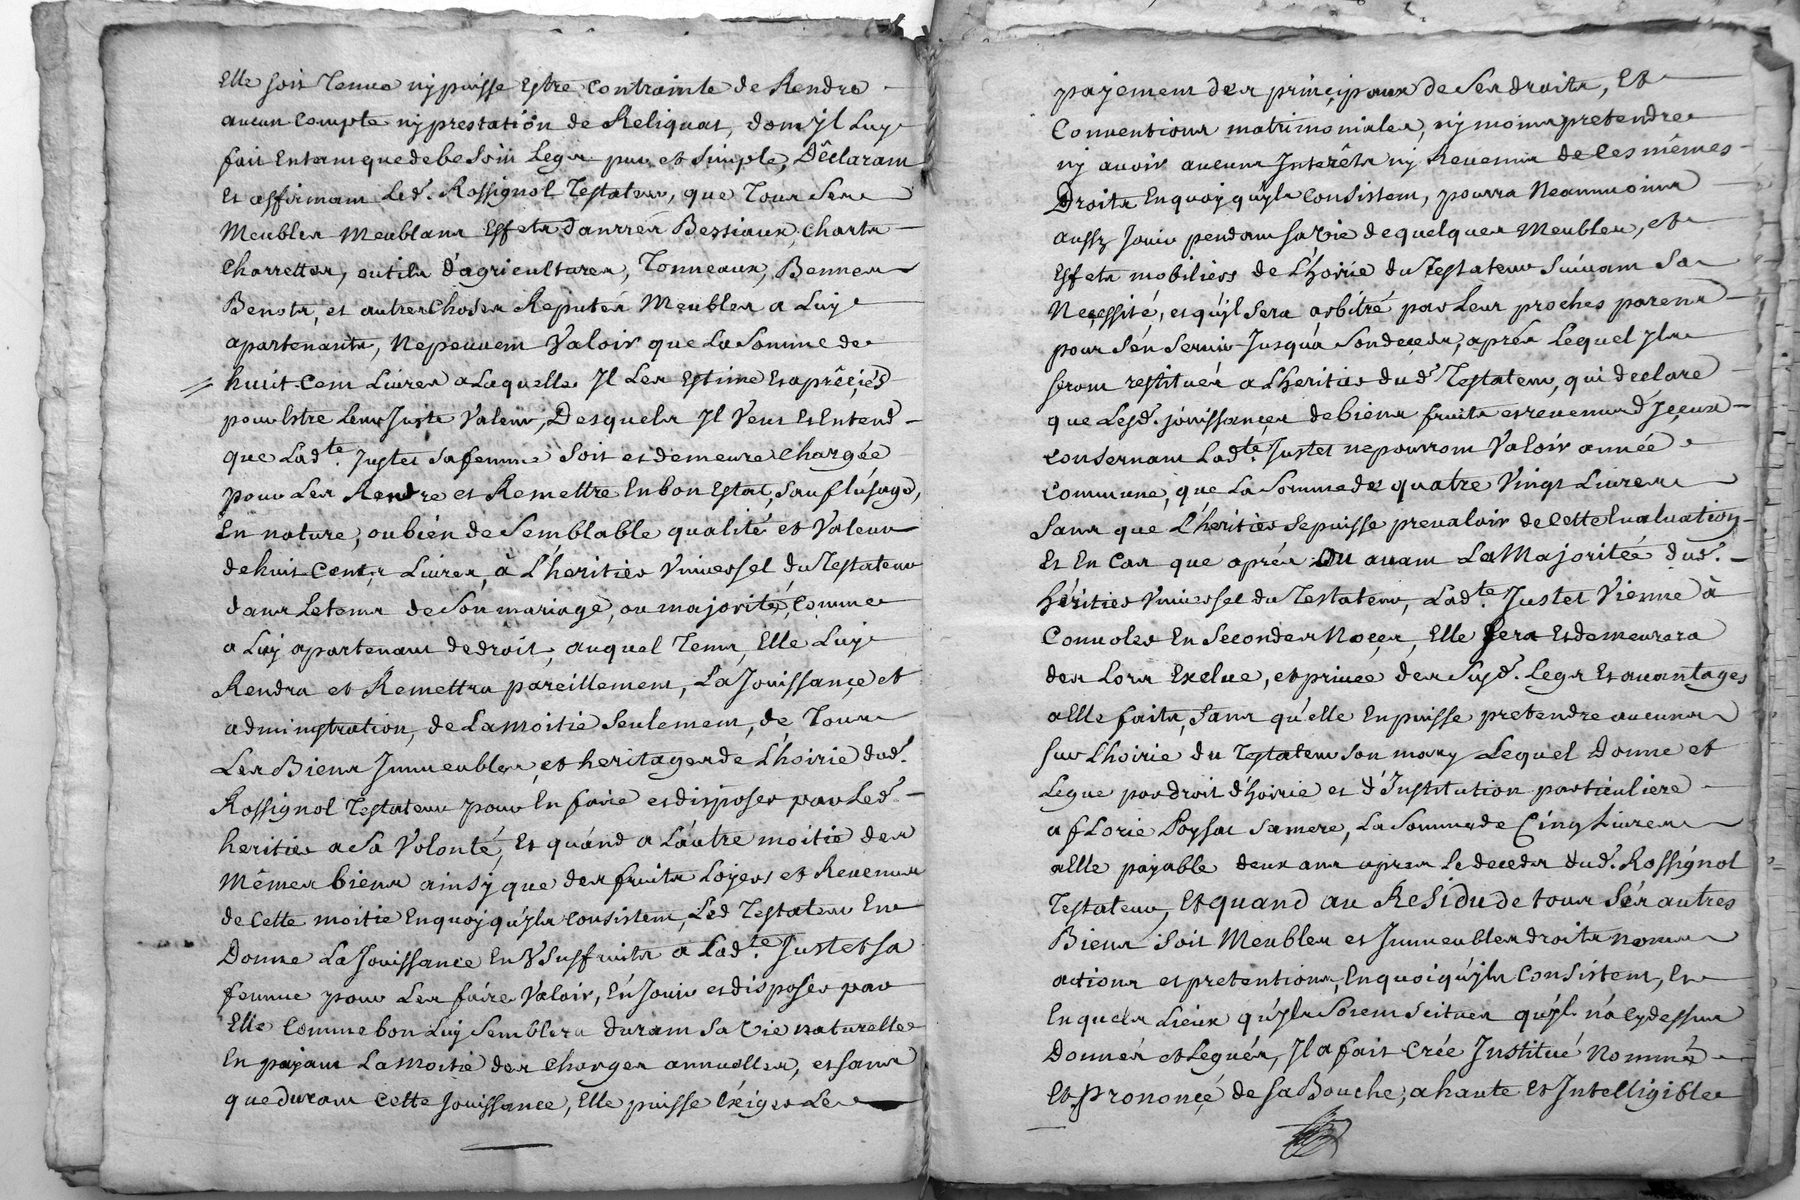 Elle soit Tenue ny puisse Estre Contrainte de Rendre
aucun Compte ny prestation de Reliquat, dont Jl Luy
fait Entant que de beSoin Legs pur et Simple, Dêclarant
Et affirmant Led. Rossignol Testateur, que Tous Ses
Meubles Meublans Effets danrrés Bestiaux, Charts
Charrettes, outils d'agricultures, Tonneaux, Bennes
Benots, et autres Choses Reputés Meubles a Luy
apartenants, Nepeuvent Valoir que La Somme de
huict Cent Livres a Laquelle Jl Les Estime Et aprêciés
pour Estre Leur Juste Valeur, Desquels Jl Veut Et Entend
que Ladte. Justet Sa femme Soit et demeure Chargée
pour Les Rendre et Remettre En bon Estat, Sauf L'usage,
En nature, ou bien de Semblable qualité et Valeur
de huit Cents Livres, à L'heritier Universel du Testateur
dans Le tems de Son mariage, ou majorité, Comme
a Luy apartenant de droit, auquel Tems, Elle Luy
Rendra et Remettra pareillement, La Jouissançe et
adminstration, de La moitié Seulement, de Tous
Les Biens Jmmeubles, et heritages de L'hoirie dud.
Rossignol Testateur pour En faire et disposer par Led.
heritier a Sa Volonté, Et quánd a Láutre moitié des
Mêmes biens ainsy que des fruits Loyers et Revenus
de Cette moitie En quoy qu'yls Consistent, Led Testateur En
Donne La Jouissance En Usuffruits a Ladte. Justet Sa
femme pour Les faire Valoir, En Jouir et disposer par
Elle Comme bon Luy Semblera durant Sa Vie naturelle
En payant La moitié des Charges annuelles, et Sans
que durant Cette Jouissance, Elle puisse Exiger Le
payement des prinçipaux de Ses droits, Et
Conventions matrimoniales, ny moins pretendre
ny avoir aucuns Jnterêts ny Revenus de Ces mêmes
Droits En quoy qu'yls Consistent, pourra Neanmoins
aussy Jouir pendant Sa Vie de quelques Meubles, et
Effets mobiliers de L'hoirie du Testateur Suivant Sa
Neçessité, et qu'yl Sera arbitré par Leur proches parens
pour S'en Servir Jusqu'a Son deçeds, aprés Lequel Jls
Seront restitués a L'heritier dud. Testateur, qui declare
que Lesd. joüissançes de biens fruits et revenus d'Jçeux
Consernant Ladte. Justet ne pourront Valoir année
Commune, que La Somme de quatre Vingt Livres
Sans que L'heritier Se puisse prevaloir de Cette Evaluation
Et En Cas que aprés ou avant La Majoritée dud.
héritier Universel du Testateur, Ladte. Justet Vienne à
Convoler En Secondes Noçes, Elle Sera Et demeurera
des Lors Exclue, et privée des Susd. Legs Et avantages
a Elle faits, Sans qu'elle En puisse pretendre aucuns
Sur L'hoirie du Testateur Son mary Lequel Donne et
Legue par droit d'hoirie et d'Jnstitution particuliere
a fLorie Poysat Sa mere, La Somme de Cinq Livres
a Elle payable deux ans apres Le deceds dud. Rossignol
Testateur, Et quand au Residu de tous Sés autres
Biens Soit Meubles et Jmmeubles droits noms
actions et pretentions, En quoi qu'yls Consistent, Et
En quels Lieux qu'yls Soient Scitues qu'yl n'a Cy dessus
Donnés et Legués, Jl a fait Crée Jnstitué Nommé
Et prononçé de Sa Bouche, a haute Et Jntelligible